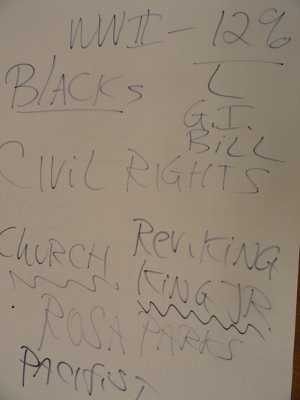 WWII - 12%
BLACKs
L
G.I.
BILL
CIVIL RIGHTS
CHURCH
REV. KING
KING JR
ROSA PARKS
PACIFIST